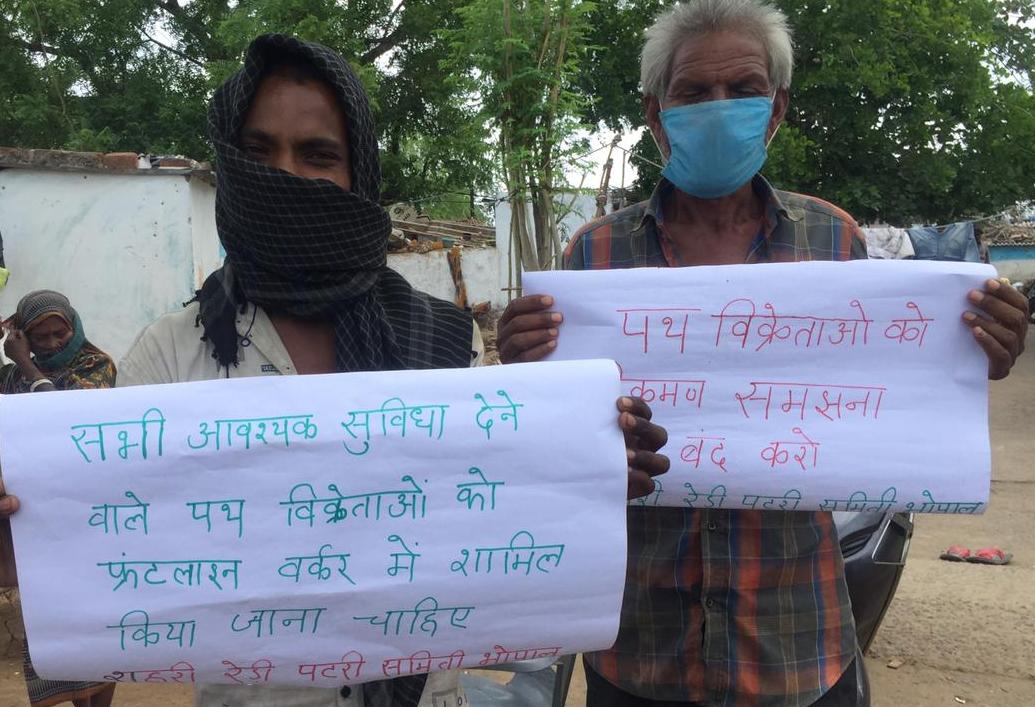 सभी आवश्यक सुविधा देने
वाले पथ विक्रेताओं को
फ्रंटलाइन वर्कर में शामिल
किया जाना चाहिए
शहरी रेडी पटरी समिती भोपाल
पथ विक्रेताओ को
क्रमण समझना
बंद करो
री रेडी पटरी समिती भोपाल